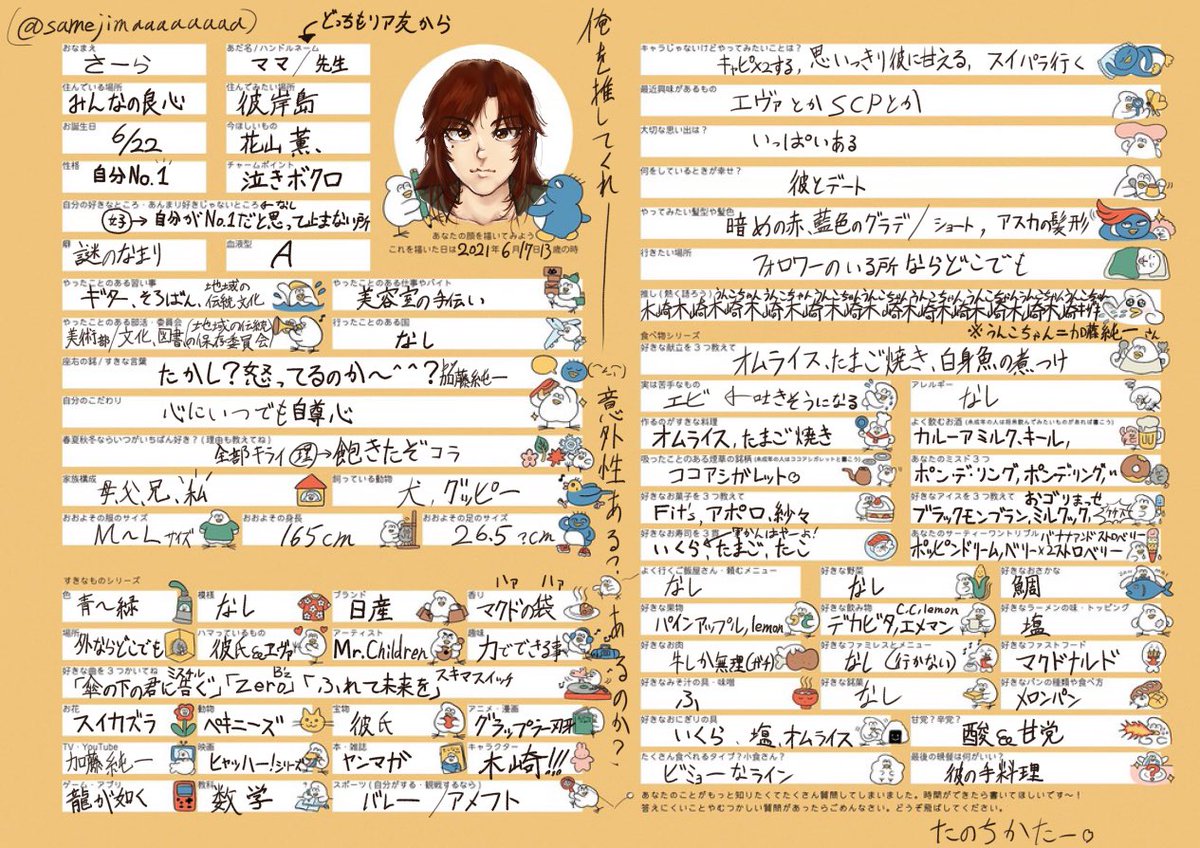 (@samejimaaaaaaaa)
どっちもリア友から
俺を推してくれ――
意外性ある?あるのか?
おなまえ
さーら
あだ名/ハンドルネーム
ママ/先生
住んでいる場所
みんなの良心
住んでみたい場所
彼岸島
お誕生日
6/22
今ほしいもの
花山薫、
性格
自分No.1
チャームポイント
泣きボクロ
自分の好きなところ・あんまり好きじゃないところ
なし
好→自分がNo.1だと思って止まない所
癖
謎のなまり
血液型
A
あなたの顔を描いてみよう
これを描いた日は2021年6月17日13歳の時
やったことのある習い事
ギター、そろばん、地域の伝統文化
やったことのある仕事やバイト
美容室の手伝い
やったことのある部活・委員会
美術部/文化、図書(地域の伝統の保存委員会)
行ったことのある国
なし
座右の銘/すきな言葉
たかし?怒ってるのか~^^?加藤純一
自分のこだわり
心にいつでも自尊心
春夏秋冬ならいつがいちばん好き?(理由も教えてね)
全部キライ 理→飽きたぞコラ
家族構成
母、父、兄、私
飼っている動物
犬、グッピー
おおよその服のサイズ
M~Lサイズ
おおよその身長
165cm
おおよその足のサイズ
26.5?cm
すきなものシリーズ
色
青~緑
模様
なし
ブランド
日産
香り
ハァ ハァ
マクドの袋
場所
外ならどこでも
ハマっているもの
彼氏&エヴァ
アーティスト
Mr.Children
趣味
力でできる事
好きな曲を3つかいてね
「傘の下の君に告ぐ」ミスチル「Zero」B'z「ふれて未来を」スキマスイッチ
お花
スイカズラ
動物
ペキニーズ
宝物
彼氏
アニメ・漫画
グラップラー刃牙
TV・YouTube
加藤純一
映画
ヒャッハー!シリーズ
本・雑誌
ヤンマガ
キャラクター
木崎!!!
ゲーム・アプリ
龍が如く
教科
数学
スポーツ(自分がする・観戦するなら)
バレー/アメフト
キャラじゃないけどやってみたいことは?
キャピ×2する、思いっきり彼に甘える、スイパラ行く
最近興味があるもの
エヴァとかSCPとか
大切な思い出は?
いっぱいある
何をしているときが幸せ?
彼とデート
やってみたい髪型や髪色
暗めの赤、藍色のグラデ/ショート、アスカの髪形
行きたい場所
フォロワーのいる所ならどこでも
推し(熱く語ろう)
うんこちゃんうんこちゃんうんこちゃんうんこちゃんうんこちゃん
木崎木崎木崎木崎木崎木崎木崎木崎木崎木崎
※うんこちゃん=加藤純一さん
食べ物シリーズ
好きな献立を3つ教えて
オムライス、たまご焼き、白身魚の煮つけ
実は苦手なもの
エビ ←吐きそうになる
アレルギー
なし
作るのがすきな料理
オムライス、たまご焼き
よく飲むお酒(未成年の人は将来飲んでみたいものがあれば書こう)
カルーアミルク、キール、
吸ったことのある煙草の銘柄(未成年の人はココアシガレットと書こう)
ココアシガレット。
あなたのミスド3つ
ポン・デ・リング、ポンデ・リング、〃
好きなお菓子を3つ教えて
Fit's、アポロ、紗々
好きなアイスを3つ教えて
おゴリまっせ
ブラックモンブラン、ミルクック、
好きなお寿司を3貫
いくら、たまご、たこ
あなたのサーティーワントリプル
バナナアンドストロベリー
ポッピンドリーム、ベリー×2ストロベリー
よく行くご飯屋さん・頼むメニュー
なし
好きな野菜
なし
好きなおさかな
鯛
好きな果物
パインアップル、lemon
好きな飲み物
C.C.lemon
デカビタ、エメマン
好きなラーメンの味・トッピング
塩
好きなお肉
牛しか無理(ガチ)
好きなファミレスとメニュー
なし(行かない)
好きなファストフード
マクドナルド
好きなみそ汁の具・味噌
ふ
好きな銘菓
なし
好きなパンの種類や食べ方
メロンパン
好きなおにぎりの具
いくら、塩、オムライス
甘党?辛党?
酸&甘党
たくさん食べれるタイプ?小食さん?
ビミョーなライン
最後の晩餐は何がいい?
彼の手料理
あなたのことがもっと知りたくてたくさん質問してしまいました。時間ができたら書いてほしいです~!
答えにくいことやむつかしい質問があったらごめんなさい。どうぞ飛ばしてください。
たのちかたー。